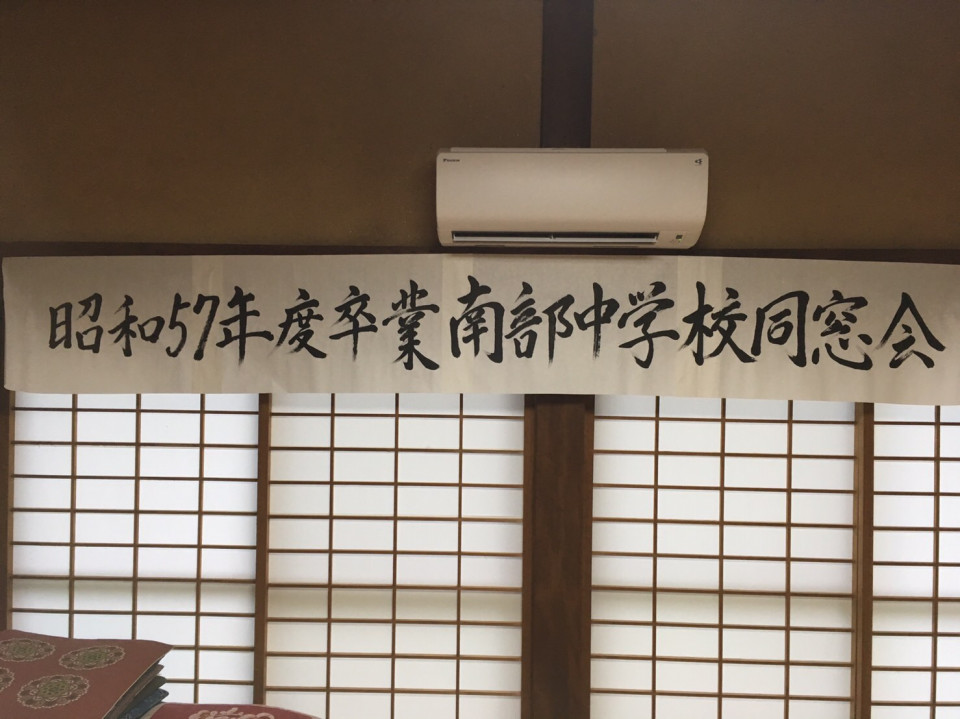 昭和57年度卒業南部中学校同窓会